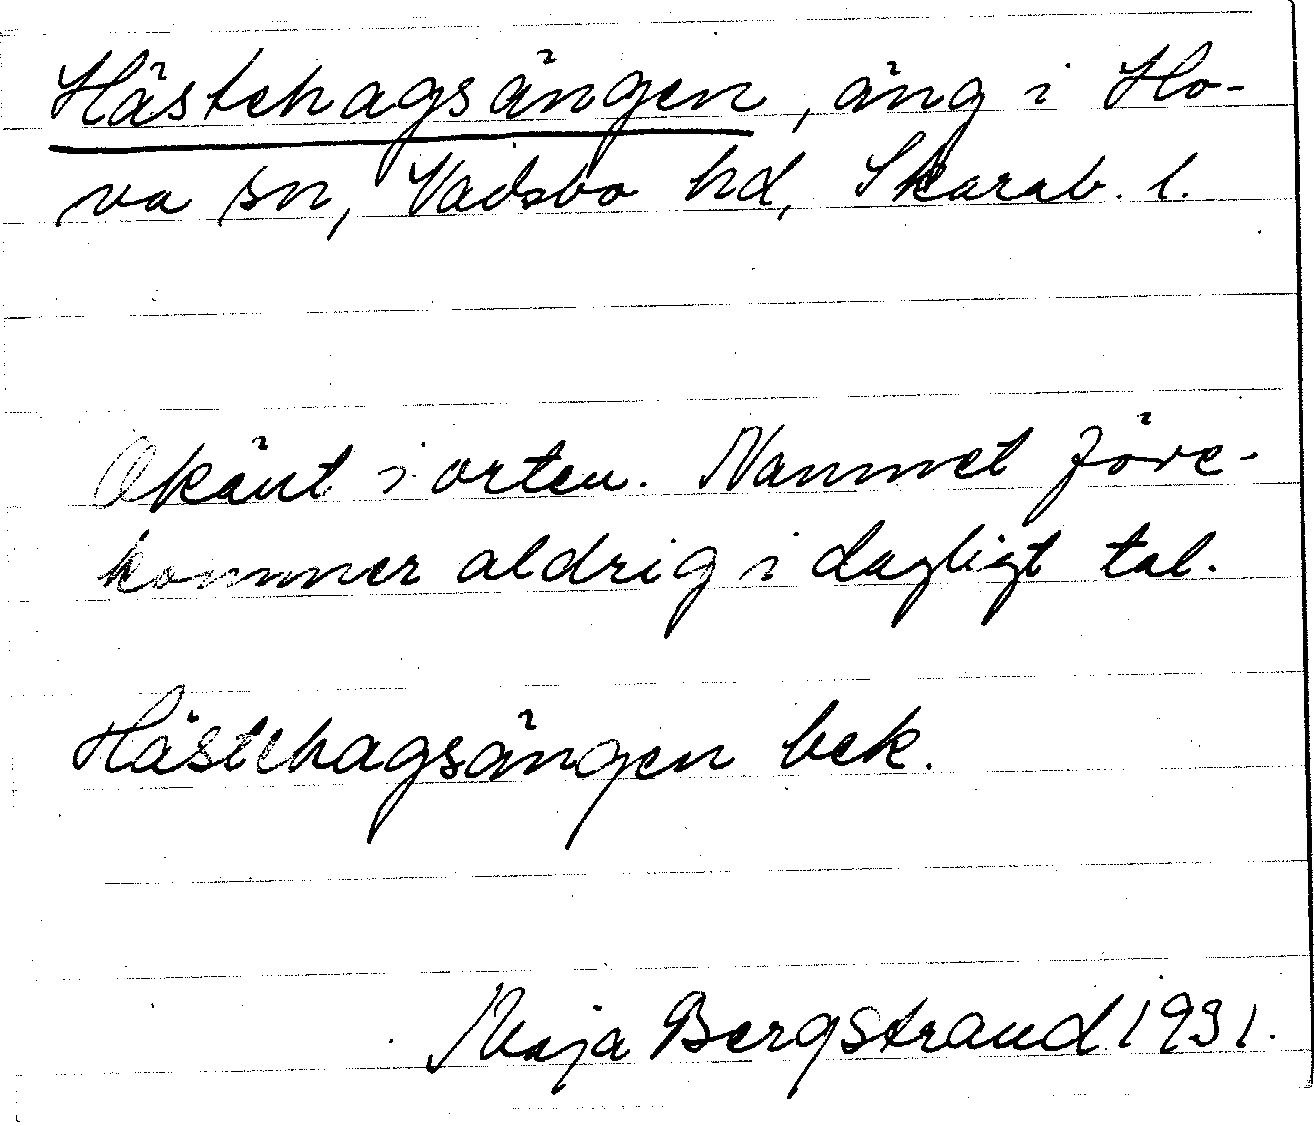 Hästehagsängen, äng i Ho-
va sn, Vadsbo hd, Skarab. l.
Okänt i orten. Namnet före-
kommer aldrig i dagligt tal.
Hästehagsängen bek.
Maja Bergstrand 1931.